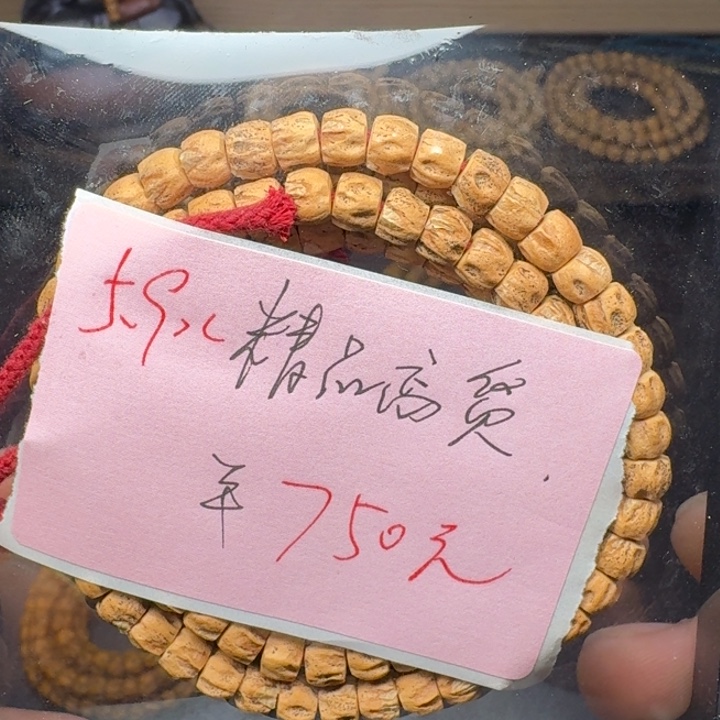 5.9× 精品高货
￥750元